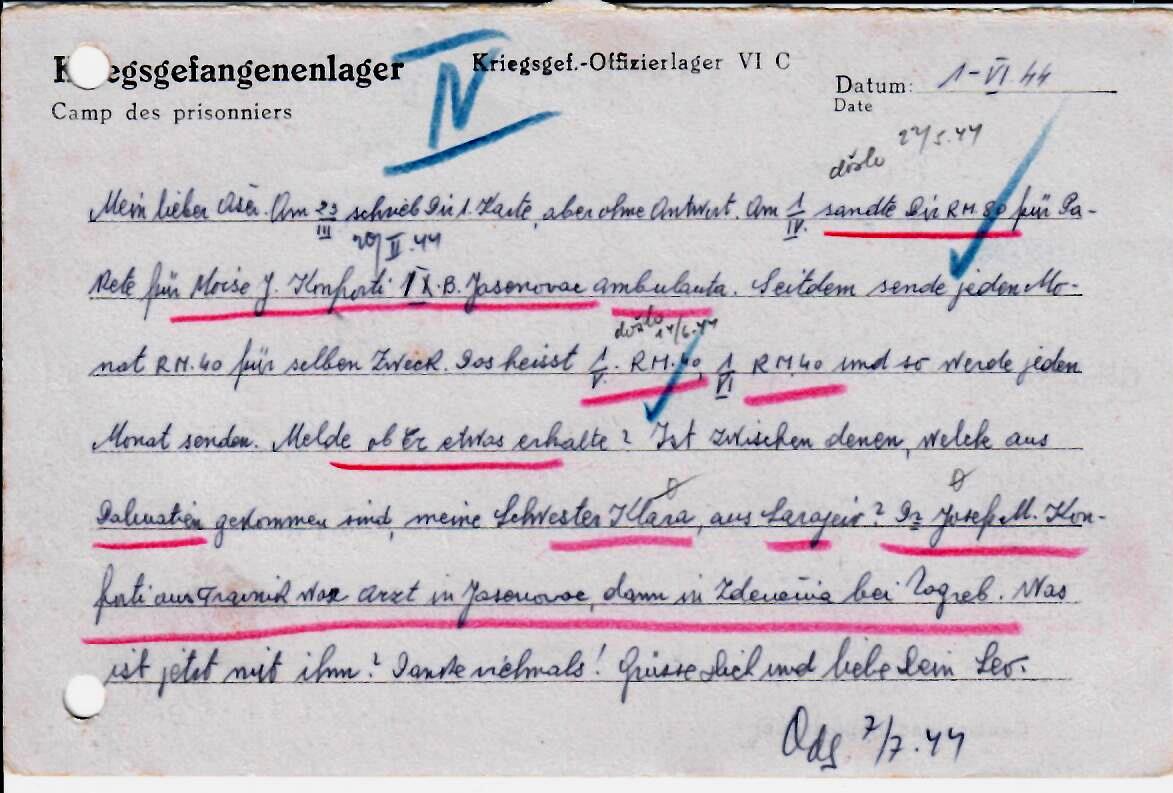 Kriegsgefangenenlager
Kriegsgef.-Offizierlager VI C
IV
Camp des prisonniers
Datum: 1-VI 44
Date
došlo 27/5.44
Mein lieber Asër. Am 23/III schrieb Dir 1. Karte, aber ohne Antwort. Am 1/IV. sandte Dir RM 80 für Pa-
20/II.44
kete für Moise J. Konforti IX.B. Jasenovac ambulanta. Seitdem sende jeden Mo-
došlo 14/6.44
nat RM.40 für selben Zweck. Das heisst 1/V. RM.40, 1/VI RM.40 und so werde jeden
Monat senden. Melde ob Er etwas erhalte? Ist zwischen denen, welche aus
Dalmatien gekommen sind, meine Schwester Klara, aus Sarajevo? Dr Josef M. Kon-
forti aus Travnik war Arzt in Jasenovac, dann in Zdenčina bei Zagreb. Was
ist jetzt mit ihm? Danke vielmals! Grüsse Dich und liebe Dein Leo.
Odg 7/7.44